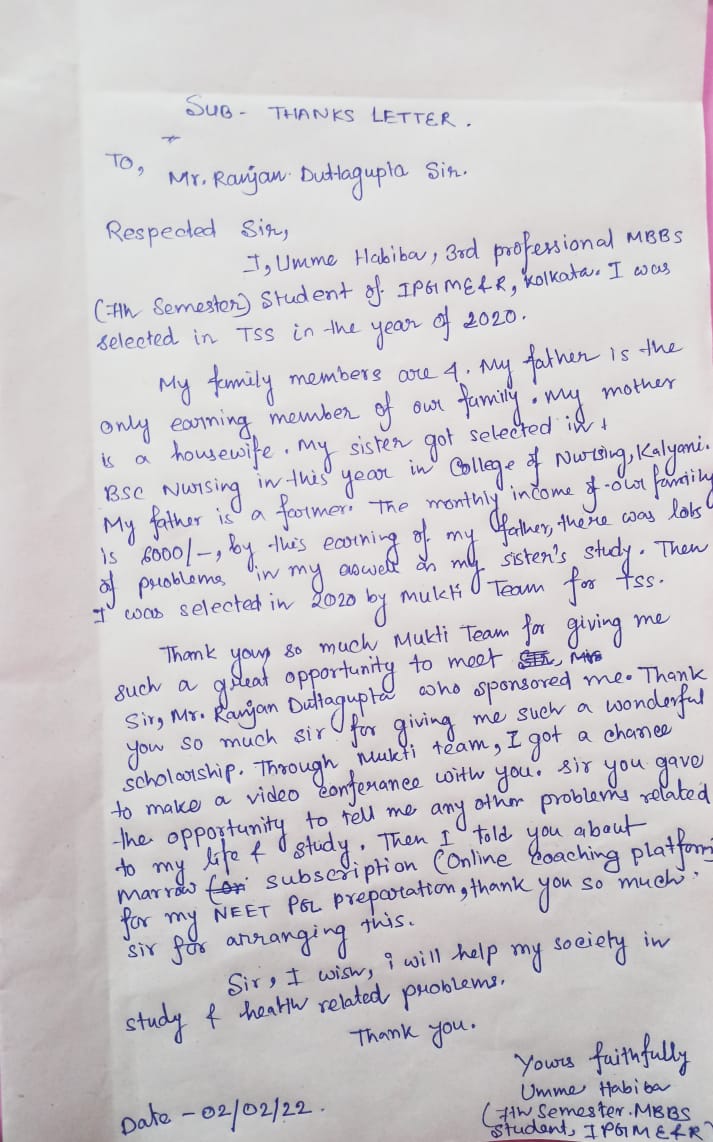 SUB - THANKS LETTER.
To,
Mr. Ranjan Duttagupta Sir.
Respected Sir,
I, Umme Habiba, 3rd professional MBBS
(7th Semester) Student of IPGME&R, Kolkata. I was
selected in TSS in the year of 2020.
My family members are 4. My father is the
only earning member of our family. My mother
is a housewife. My sister got selected in
BSC Nursing in this year in College of Nursing, Kalyani.
My father is a farmer. The monthly income of our family
is 6000/-, by this earning of my father, there was lots
of problems in my aswell as my sister's study. Then
I was selected in 2020 by Mukti Team for TSS.
Thank you so much Mukti Team for giving me
such a great opportunity to meet
Sir, Mr. Ranjan Duttagupta who sponsored me. Thank
you so much sir for giving me such a wonderful
scholarship. Through Mukti team, I got a chance
to make a video conferance with you. Sir you gave
the opportunity to tell me any other problems related
to my life & study. Then I told you about
marrow subscription (Online Coaching platform
for my NEET PG preparation, thank you so much
sir for arranging this.
Sir, I wish, i will help my society in
study & health related problems.
Thank you.
Yours faithfully
Umme Habiba
(7th Semester. MBBS
Student, IPGME&R)
Date - 02/02/22.